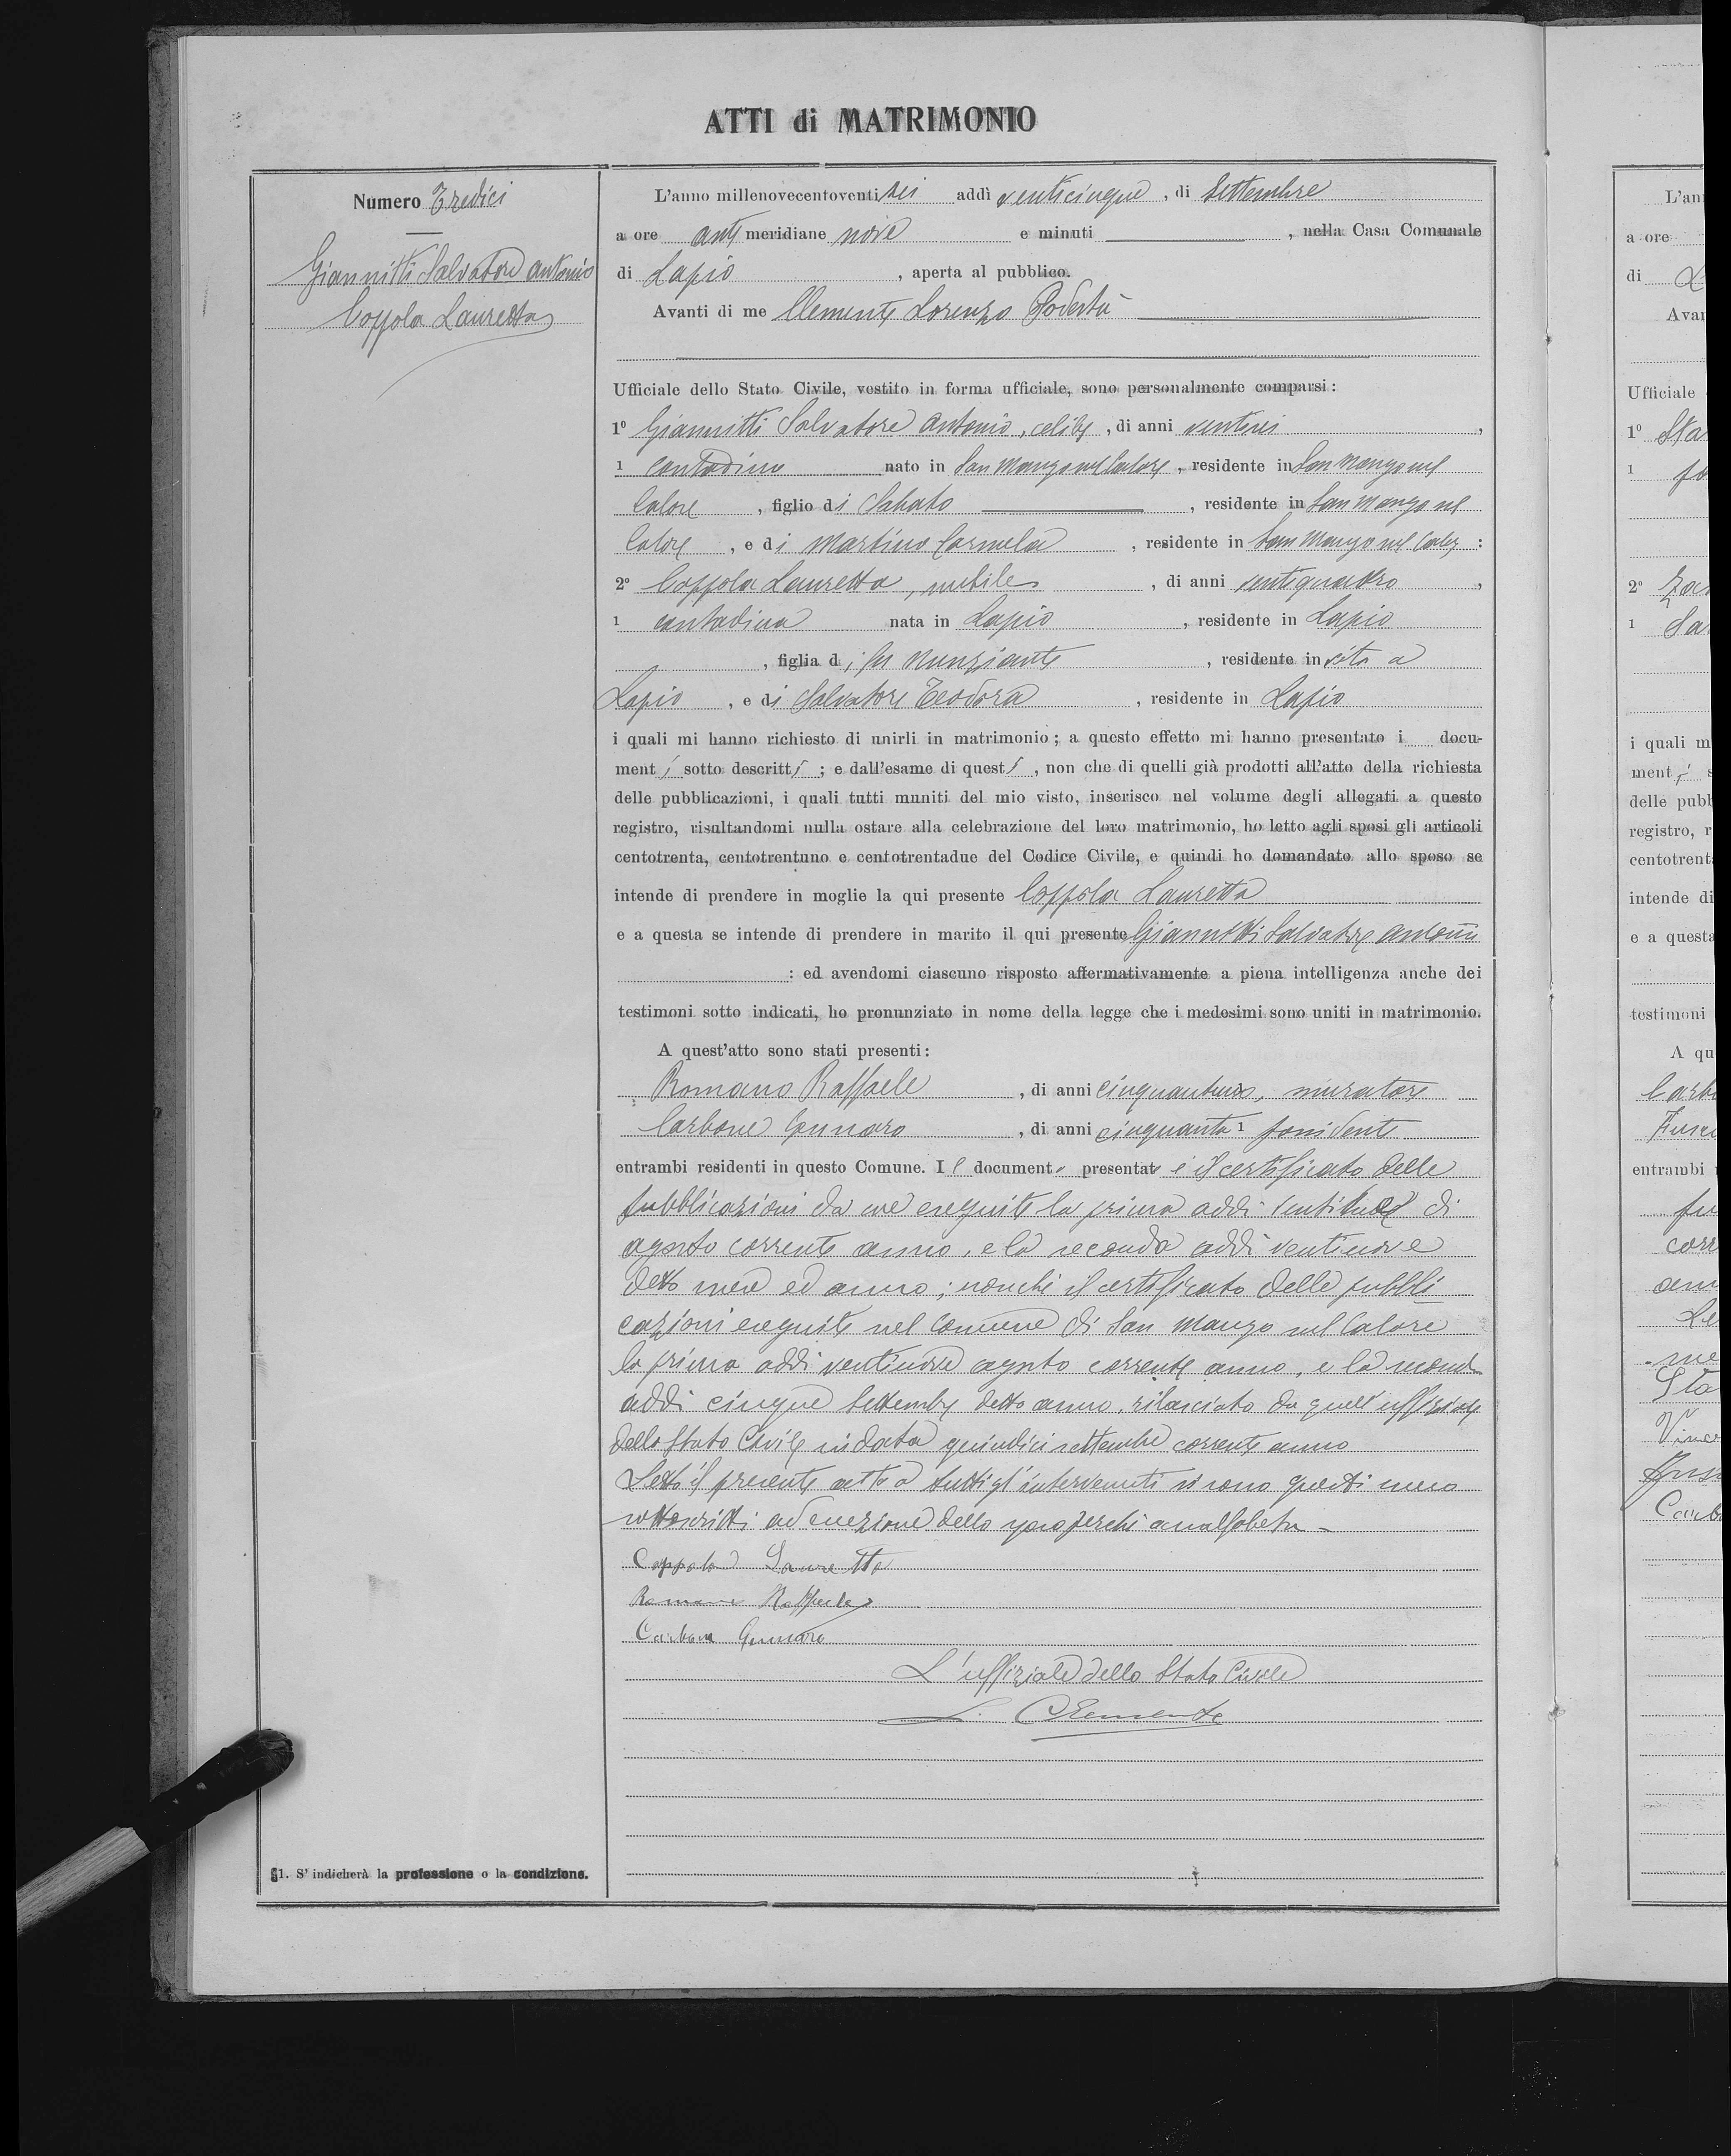 ATTI di MATRIMONIO
Numero Tredici
Giannitti Salvatore Antonio
Coppola Lauretta
1. S' indicherà la professione o la condizione.
L'anno millenovecentoventi sei addì venticinque, di Settembre
a ore anti meridiane nove e minuti , nella Casa Comunale
di Lapio , aperta al pubblico.
Avanti di me Clemente Lorenzo Podestà
Ufficiale dello Stato Civile, vestito in forma ufficiale, sono personalmente comparsi:
1º Giannitti Salvatore Antonio, celibe, di anni ventisei ,
1 contadino nato in San Mango sul Calore, residente in San Mango sul
Calore , figlio di Sabato , residente in San Mango sul
Calore , e di Martino Carmela , residente in San Mango sul Calore :
2º Coppola Lauretta, nubile , di anni ventiquattro ,
1 contadina nata in Lapio , residente in Lapio
, figlia di fu Nunziante , residente in vita a
Lapio , e di Salvatore Teodora , residente in Lapio
i quali mi hanno richiesto di unirli in matrimonio; a questo effetto mi hanno presentato i docu-
menti sotto descritti ; e dall'esame di questi , non che di quelli già prodotti all'atto della richiesta
delle pubblicazioni, i quali tutti muniti del mio visto, inserisco nel volume degli allegati a questo
registro, risultandomi nulla ostare alla celebrazione del loro matrimonio, ho letto agli sposi gli articoli
centotrenta, centotrentuno e centotrentadue del Codice Civile, e quindi ho domandato allo sposo se
intende di prendere in moglie la qui presente Coppola Lauretta
e a questa se intende di prendere in marito il qui presente Giannitti Salvatore Antonio
: ed avendomi ciascuno risposto affermativamente a piena intelligenza anche dei
testimoni sotto indicati, ho pronunziato in nome della legge che i medesimi sono uniti in matrimonio.
A quest'atto sono stati presenti:
Romano Raffaele , di anni muratore
Carbone Gennaro , di anni cinquanta 1 possidente
entrambi residenti in questo Comune. Il documento presentato è il certificato delle
pubblicazioni da me eseguite la prima addì di
agosto corrente anno, e la seconda addì ventinove
detto mese ed anno; nonchè il certificato delle pubbli
cazioni eseguite nel Comune di San Mango sul Calore
la prima addì ventinove agosto corrente anno, e la seconda
addì cinque Settembre detto anno, rilasciato da quell'uffiziale
dello Stato Civile in data quindici settembre corrente anno
Letto il presente atto a tutti gl'intervenuti si sono questi meco
sottoscritti ad eccezione dello sposo perchè analfabeta
Coppola Lauretta
Romano Raffaele
Carbone Gennaro
L'uffiziale dello Stato Civile
L. Clemente
L'an
a ore
di L
Avan
Ufficiale
1º Sta
1
2º
1 Sa
i quali m
menti s
delle pubb
registro, r
centotrent
intende di
e a questa
testimoni
A qu
Carb
Fusc
entrambi
corr
Le
Sta
Vince
Carb